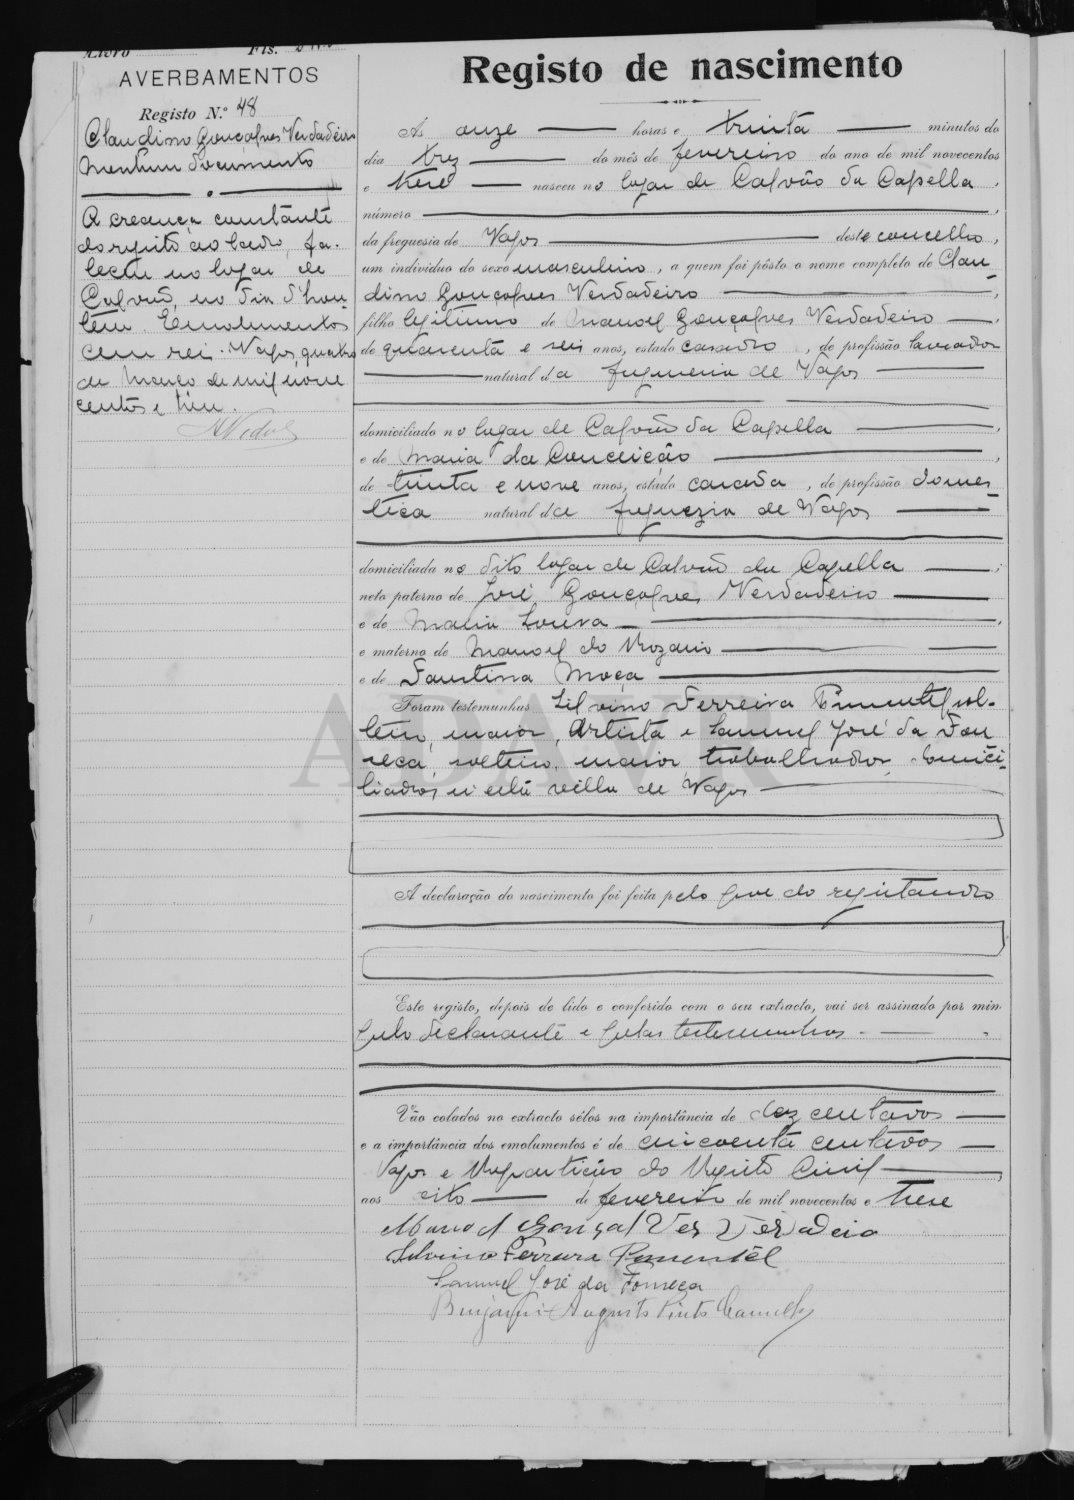 Livro Fls.
AVERBAMENTOS
Registo N.º 48
Claudino Gonçalves Verdadeiro
Nenhum documento
A creança constante
do registo ao lado, fa-
leceu no logar de
Calvão, no dia d'hon-
tem. Emolumentos
cem reis. Vagos, quatro
de Março de mil nove
centos e treze.
Registo de nascimento
Ás onze horas e trinta minutos do
dia trez do mês de fevereiro do ano de mil novecentos
e treze nasceu no logar de Calvão da Capella,
número
da freguesia de Vagos deste concelho,
um indivíduo do sexo masculino, a quem foi pôsto o nome completo de Clau-
dino Gonçalves Verdadeiro,
filho legitimo de Manoel Gonçalves Verdadeiro,
de quarenta e seis anos, estado casado, de profissão lavrador
natural da freguezia de Vagos
domiciliado no logar de Calvão da Capella,
e de Maria da Conceição,
de trinta e nove anos, estado casada, de profissão domes-
tica natural da freguezia de Vagos
domiciliada no dito logar de Calvão da Capella;
neto paterno de José Gonçalves Verdadeiro
e de Maria Loura,
e materno de Manoel do Rozario
e de Faustina Moça
Foram testemunhas Silvino Ferreira Pimentel, sol-
teiro, maior, Artista e Samuel José da Fon
seca, solteiro, maior, trabalhador, domici-
liados n'esta villa de Vagos
ADAVR
A declaração do nascimento foi feita pelo pae do registando
Este registo, depois de lido e conferido com o seu extracto, vai ser assinado por mim
pelo declarante e pelas testemunhas.
Vão colados no extracto sêlos na importância de dez centavos
e a importância dos emolumentos é de cincoenta centavos
Vagos e Repartição do Registo Civil
aos oito de fevereiro de mil novecentos e treze
Manoel Gonçalves Verdadeiro
Silvino Ferreira Pimentel
Samuel José da Fonseca
Benjamin Augusto Pinto